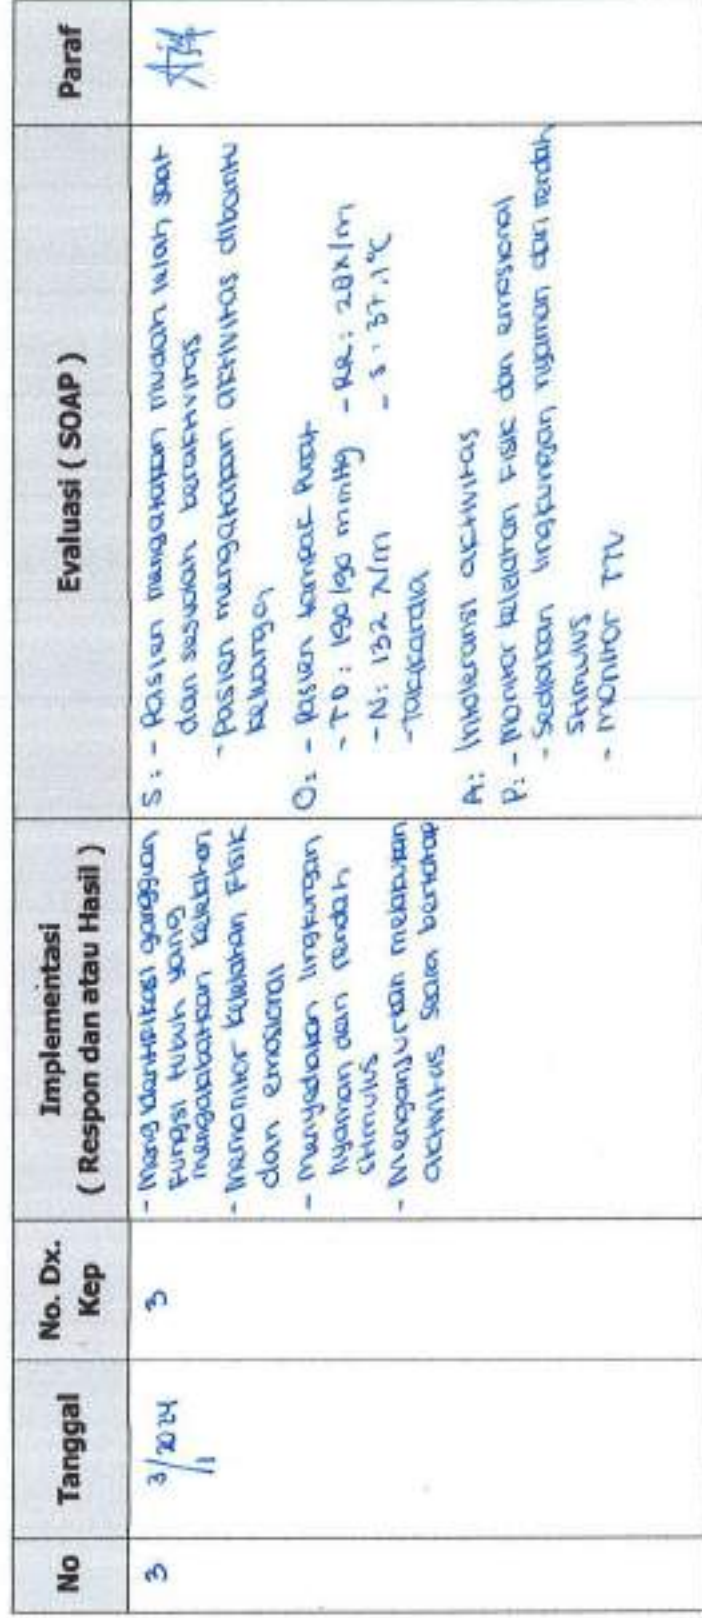 No
Tanggal
No. Dx.
Kep
Implementasi
( Respon dan atau Hasil )
Evaluasi ( SOAP )
Paraf
3
3/1 2024
3
- Mengidentifikasi gangguan
fungsi tubuh yang
mengakibatkan kelelahan
- Memonitor kelelahan fisik
dan emosional
- Menyediakan lingkungan
nyaman dan rendah
stimulus
- Menganjurkan melakukan
aktivitas secara bertahap
S : - Pasien mengatakan mudah lelah saat
dan sesudah beraktivitas
- Pasien mengatakan aktivitas dibantu
keluarga
O : - Pasien tampak Pucat
- TD : 190/90 mmHg - RR : 28x/m
- N : 132 x/m - S : 37,1°C
- Takikardia
A : Intoleransi aktivitas
P : - Monitor kelelahan fisik dan emosional
- Sediakan lingkungan nyaman dan rendah
stimulus
- Monitor TTV